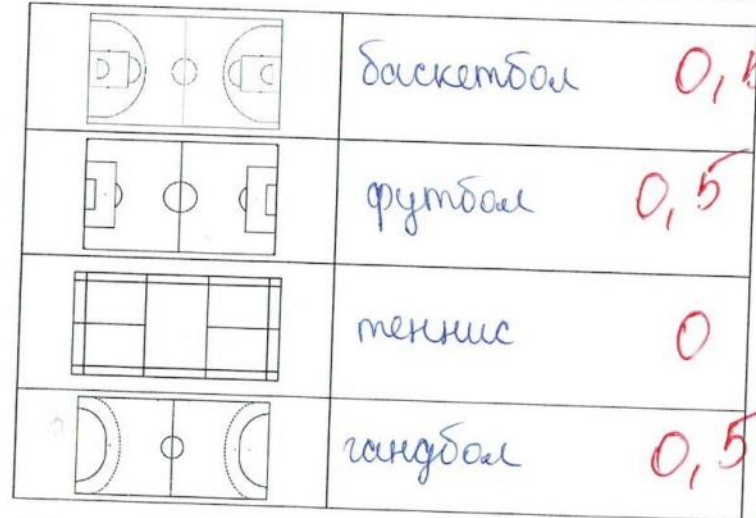 баскетбол 0,5
футбол 0,5
теннис 0
гандбол 0,5